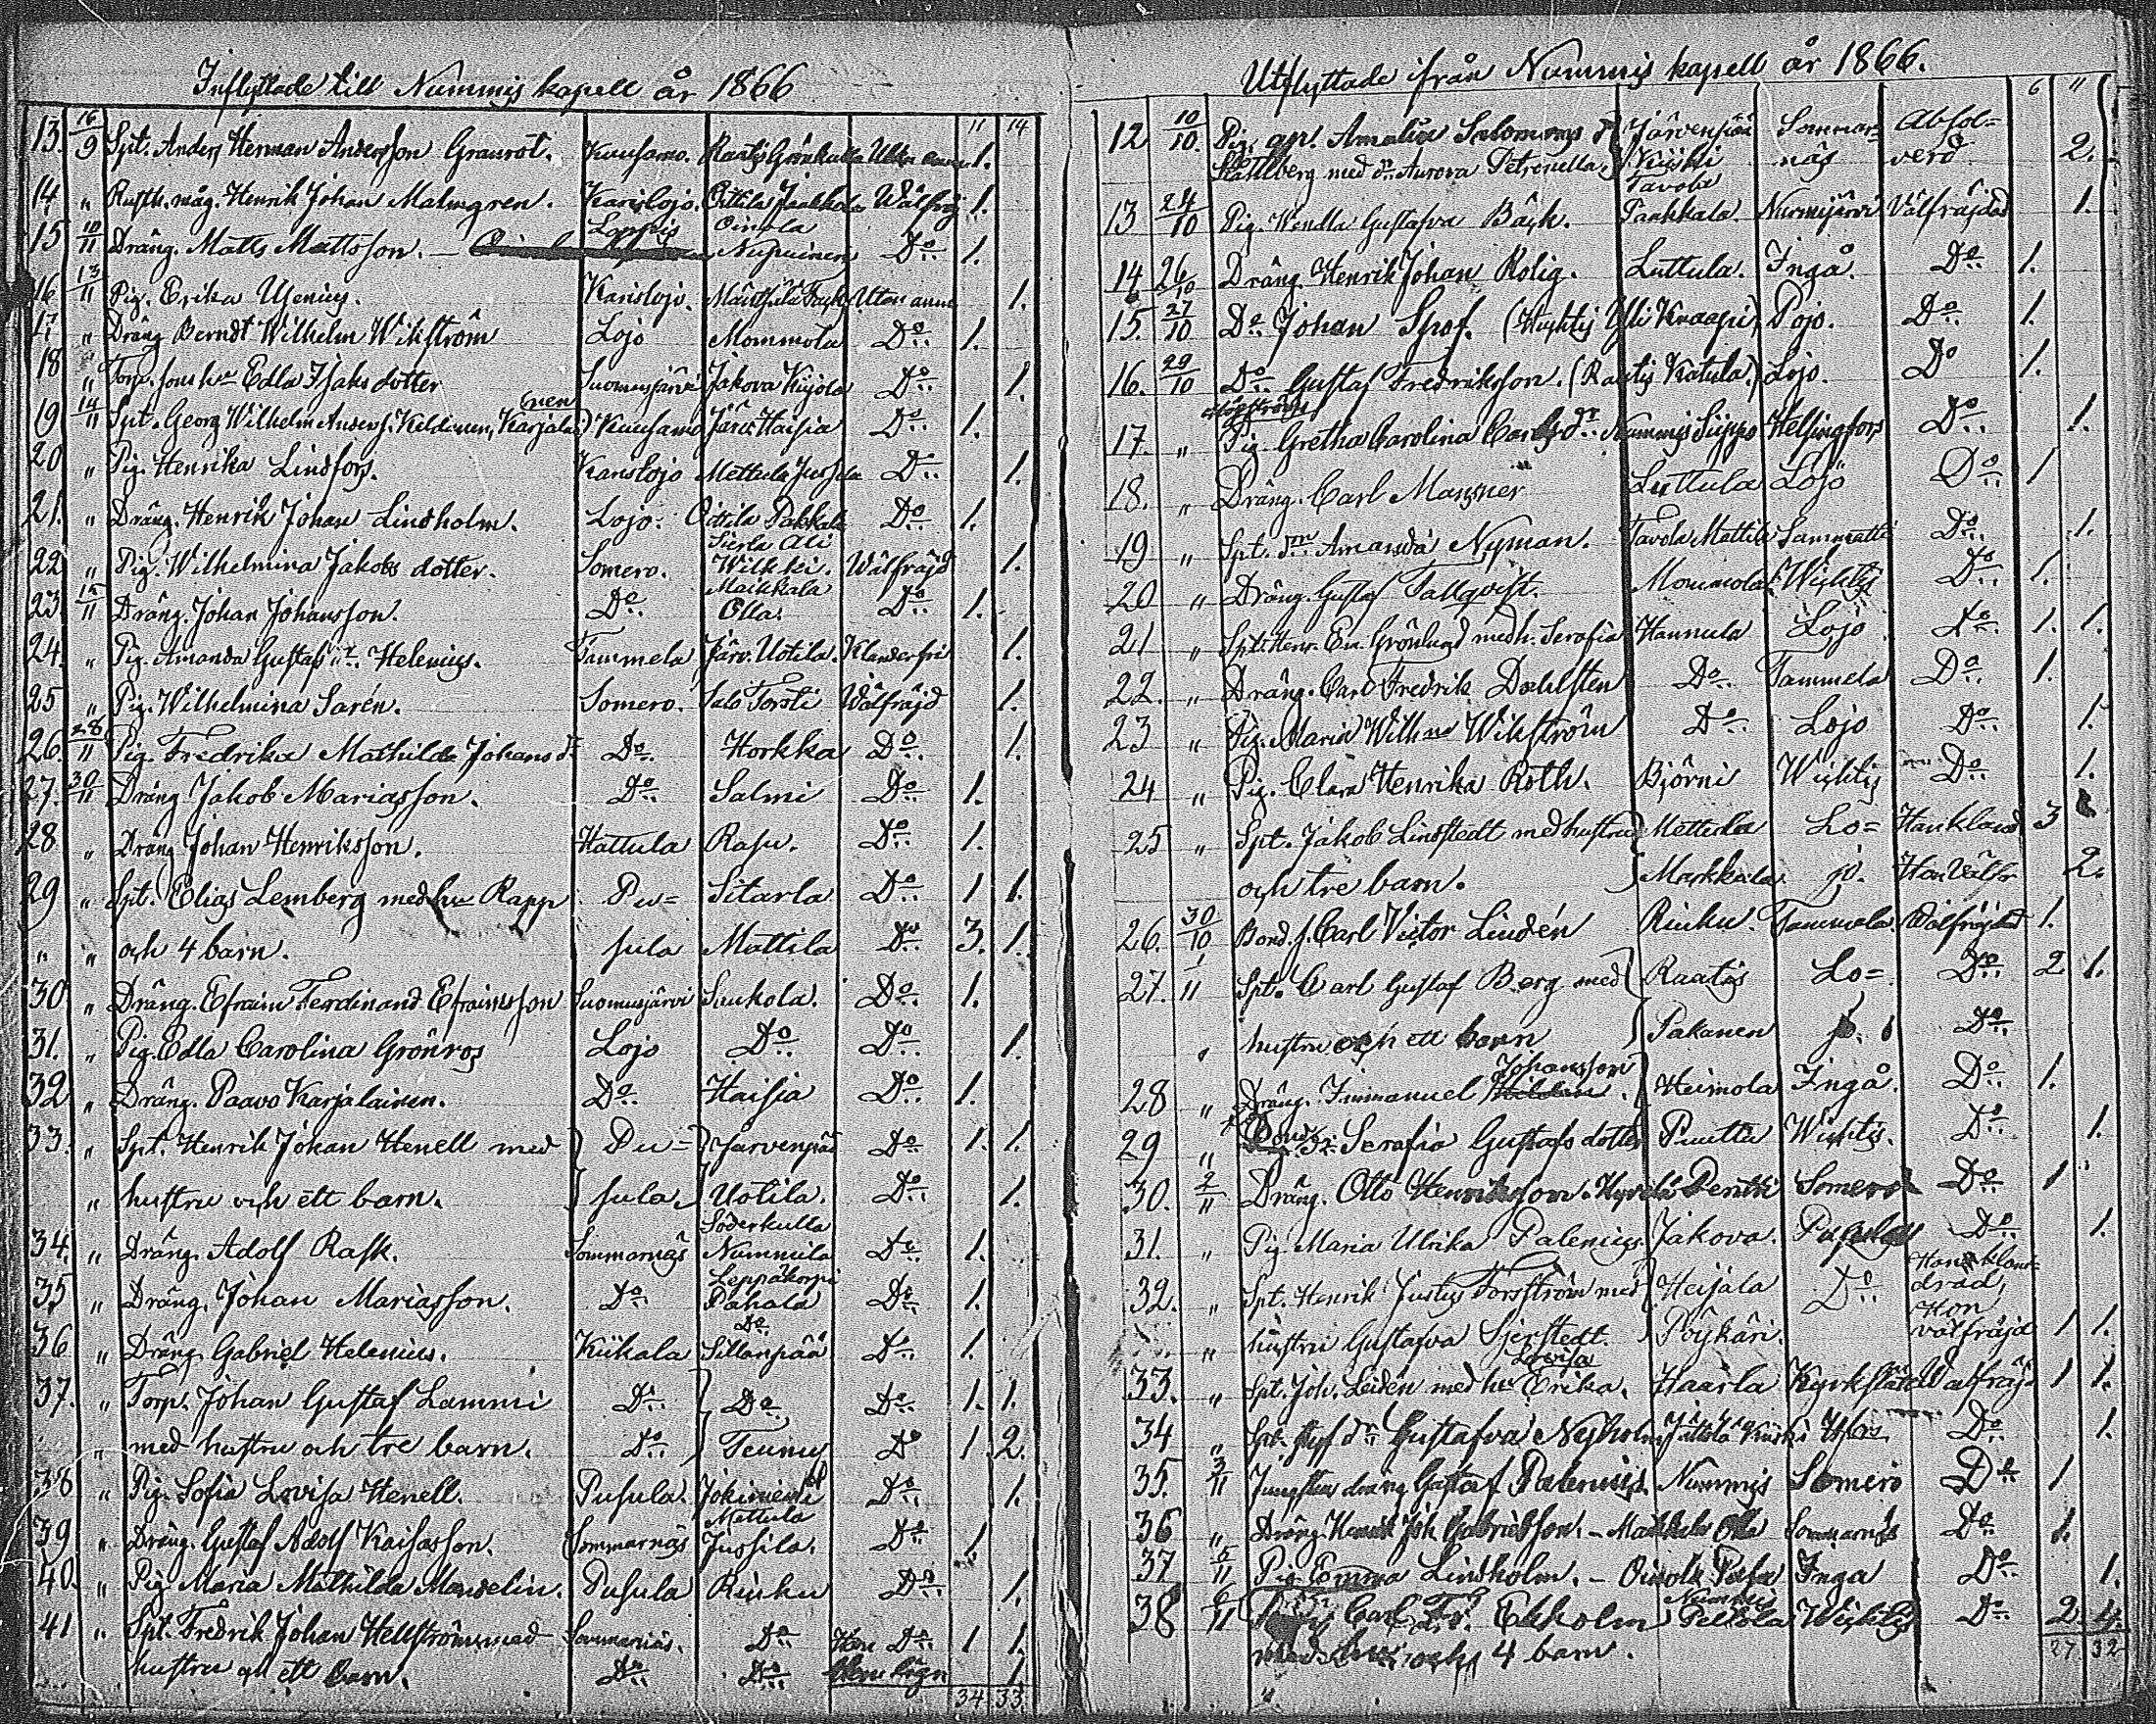 Inflyttade till Nummis kapell år 1866
11 14
13. 16/9 Spt. Anders Herman Andersson Granrot. Kuusamo. Raatis 1.
14 " Rusth. måg. Henrik Johan Malmgren. Karislojo. Oittila Jaakkola Wälfräj 1.
Loppis Oinola
15 10/11 Dräng. Matts Mattsson. – Nupuinen Do 1.
16 13/11 Pig. Erika Usenius. Karislojo. Utan anm 1.
17 " Dräng Berndt Wilhelm Wikström Lojo Mommola Do 1.
18 " Torp. sons hu Edla Isaks dotter Suomusjärvi Jakova Do 1.
19 14/11 Spt. Georg Wilhelm Anders s. Keldinen, Karjalai(nen) Kuusamo Järv. Haisia Do 1.
20 " Pig. Henrika Lindfors. Karislojo Mettula Jussila Do 1.
21. " Dräng. Henrik Johan Lindholm. Lojo. Oittila Pakkala Do 1.
Sierla Ali
22 " Pig. Wilhelmina Jakobs dotter. Somero. Wilkki. Wälfräjd 1.
Maikkala
23. 15/11 Dräng. Johan Johansson. Do Olla. Do 1.
24. " Pig. Amanda Gustafs dr. Helenius. Tammela Järv. Uotila. Klanderfri 1.
25 " Pig. Wilhelmina Sarén. Somero. Salo Torsti Wälfräjd 1.
26. 28/11 Pig. Fredrika Mathilda Johans dr Do Horkka Do 1.
27. 30/11 Dräng Jakob Mariasson. Do Salmi Do 1.
28 " Dräng Johan Henriksson. Hattula Rasu. Do 1.
29 " Spt. Elias Lemberg med hu Rapp Pu= Sitarla Do 1 1.
" " och 4 barn. sula Mattila Do 3. 1.
30 " Dräng. Efraim Ferdinand Efraimsson Suomusjärvi Suukola. Do 1.
31. " Pig. Edla Carolina Grönros Lojo Do Do 1.
32 " Dräng. Paavo Karjalainen. Do Haisia Do 1.
33. " Spt. Henrik Johan Henell med Pu= Järvenpää Do 1. 1.
" hustru och ett barn. sula Uotila. Do 1.
Söderkulla
34. " Dräng. Adolf Rask. Sommarnäs Nummila Do 1.
Leppäkorpi
35 " Dräng. Johan Mariasson. Do Pahala Do 1.
Do
36 " Dräng. Gabriel Helenius. Kiikala Sillanpää Do 1.
37. " Torp. Johan Gustaf Lammi Do Do Do 1. 1.
" med hustru och tre barn. Do Teinus Do 1 2.
38 " Pig. Sofia Lovisa Henell. Pusula. Jokiniemi Do 1.
Mettula
39 " Dräng. Gustaf Adolf Kaisasson. Sommarnäs Jussila. Do 1
40. " Pig Maria Mathilda Mandelin. Pusula Rinku Do 1.
41 " Spt. Fredrik Johan Hellström med Sommarnäs. Do Han Do 1 1.
hustru och ett barn. Do Do 1
34 33
Utflyttade ifrån Nummis kapell år 1866.
6 11
12 10/10. Pig. Amalia Salomons dr Järvenpää Sommar= Absol=
Ståhlberg med dr. Aurora Petronella. Kiiski näs verd 2.
Tavola
13 24/10 Pig. Wendla Gustafva Bäck. Paakkala. Nurmijärvi Välfräjdad 1.
14 26/10 Dräng. Henrik Johan Rolig. Luttula. Ingå. Do 1.
15. 27/10 Do Johan Spof. (Wichtis Yli Knaapi) Pojo. Do 1.
16. 29/10 Do Gustaf Fredriksson. (Raatis Katula.) Lojo. Do 1.
17. " Pig. Gretha Carolina Carls dr. Nummis Helsingfors Do 1.
18. " Dräng. Carl Mansner Luttula Lojo Do 1
19 " Spt. dr Amanda Nyman. Tavola Mattila Sammatti Do 1.
20 " Dräng. Gustaf Tallqvist. Mommola Wichtis Do 1.
21 " Spt. Henr. Em. Grönlund med h. Serafia Hannula Lojo Do 1. 1.
22. " Dräng. Carl Fredrik Dahlsten Do Tammela Do 1.
23 " Pig. Maria Wilhna Wikström Do Lojo Do 1.
24 " Pig. Clara Henrika Roth. Björni Wichtis Do 1.
25 " Spt. Jakob Lindstedt med hustru Metterla Lo= Han 3
och tre barn. Markkula jo. Hon Välfr. 2.
26. 30/10 Bond. s. Carl Victor Lindén Rinku. Tammela. Wälfräjdad 1.
27. 1/11 Spt. Carl Gustaf Berg med Raatis Lo= Do 2 1.
" hustru och ett barn Pakanen jo. Do
Johansson
28 " Dräng. Immanuel Heimola Ingå. Do 1.
29 " Bond. dr. Serafia Gustafs dotter Puetta Wichtis. Do 1.
30. 2/11 Dräng. Otto Henriksson. Hyrsilä Pentti Somero Do 1
31. " Pig. Maria Ulrika Palenius. Jakova. Pusula Do 1.
Han klan=
32. " Spt. Henrik Justus Forsström med Heijala Do drad,
Hon
" hustru Gustafva Sjerstedt. Pöykäri. välfräjd 1 1.
Lovisa
33. " Spt. Joh. Leidén med hu Erika. Haarla Kyrkslätt Walfräjd 1 1.
34 " Spt. dr Gustafva Nyholm Jättölä Kiiski Hfors Do 1.
35. 3/11 dräng Gustaf Palenius. Nummis Somero Do 1
36 " Dräng. Henrik Joh. Gabrielsson. – Maikkala Olla Sommarnäs Do 1.
37 5/11 Pig. Emma Lindholm. – Oinola Ingå Do 1.
Nummis
38 6/11 Carl Fr. Ekholm Pellola Wichtis Do 2 4.
med hu och 4 barn.
27 32